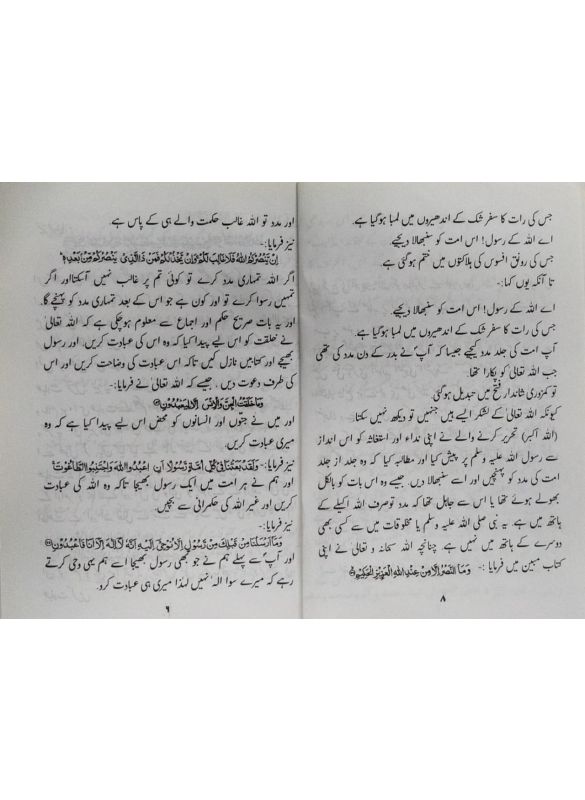 جس کی رات کا سفر شک کے اندھیروں میں لمبا ہوگیا ہے
اے اللہ کے رسول! اس امت کو سنبھالا دیجیے
جس کی رونق افسوس کی ہلاکتوں میں ختم ہوگئی ہے
تا آنکہ یوں کہا:-
اے اللہ کے رسول! اس امت کو سنبھالا دیجیے
جس کی رات کا سفر شک کے اندھیروں میں لمبا ہوگیا ہے
آپ امت کی جلد مدد کیجیے جیسا کہ آپ نے بدر کے دن مدد کی تھی
جب اللہ تعالیٰ کو پکارا تھا
تو کمزوری شاندار فتح میں تبدیل ہوگئی
کیونکہ اللہ تعالیٰ کے لشکر ایسے ہیں جنہیں تو دیکھ نہیں سکتا
(اللہ اکبر) تحریر کرنے والے نے اپنی نداء اور استغاثہ کو اس انداز
سے رسول اللہ علیہ وسلم پر پیش کیا اور مطالبہ کیا کہ وہ جلد از جلد
امت کی مدد کو پہنچیں اور اسے سنبھالا دیں۔ جیسے وہ اس بات کو بالکل
بھولے ہوئے تھا یا اس سے جاہل تھا کہ مدد توصرف اللہ اکیلے کے
ہاتھ میں ہے یہ نبی صلی اللہ علیہ و سلم یا مخلوقات میں سے کسی بھی
دوسرے کے ہاتھ میں نہیں ہے۔ چنانچہ اللہ سبحانہ و تعالیٰ نے اپنی
کتاب مبین میں فرمایا :- وَمَا النَّصْرُ اِلَّا مِنْ عِنْدِ اللهِ الْعَزِيْزِ الْحَكِيْمِ
۸
اور مدد تو اللہ غالب حکمت والے ہی کے پاس ہے
نیز فرمایا:-
اِنْ يَّنْصُرْكُمُ اللهُ فَلَا غَالِبَ لَكُمْ وَاِنْ يَّخْذُلْكُمْ فَمَنْ ذَا الَّذِيْ يَنْصُرُكُمْ مِنْ بَعْدِهٖ
اگر اللہ تمہاری مدد کرے تو کوئی تم پر غالب نہیں آسکتا اور اگر
تمہیں رسوا کرے تو اور کون ہے جو اس کے بعد تمہاری مدد کو پہنچے گا۔
اور یہ بات صریح حکم اور اجماع سے معلوم ہوچکی ہے کہ اللہ تعالیٰ
نے خلقت کو اس لیے پیدا کیا کہ وہ اس کی عبادت کریں، اور رسول
بھیجے اور کتابیں نازل کیں تاکہ اس عبادت کی وضاحت کریں اور اس
کی طرف دعوت دیں ، جیسے کہ اللہ تعالیٰ نے فرمایا:-
وَمَا خَلَقْتُ الْجِنَّ وَالْاِنْسَ اِلَّا لِيَعْبُدُوْنِ
اور میں نے جنوں اور انسانوں کو محض اس لیے پیدا کیا ہے کہ وہ
میری عبادت کریں۔
نیز فرمایا:- وَلَقَدْ بَعَثْنَا فِيْ كُلِّ اُمَّةٍ رَّسُوْلًا اَنِ اعْبُدُوا اللهَ وَاجْتَنِبُوا الطَّاغُوْتَ
اور ہم نے ہر امت میں ایک رسول بھیجا تاکہ وہ اللہ کی عبادت
کریں اور غیر اللہ کی حکمرانی سے بچیں۔
نیز فرمایا:-
وَمَا اَرْسَلْنَا مِنْ قَبْلِكَ مِنْ رَّسُوْلٍ اِلَّا نُوْحِيْ اِلَيْهِ اَنَّهٗ لَا اِلٰهَ اِلَّا اَنَا فَاعْبُدُوْنِ
اور آپ سے پہلے ہم نے جو بھی رسول بھیجا اسے ہم یہی وحی کرتے
رہے کہ میرے سوا الٰہ نہیں لہٰذا میری ہی عبادت کرو۔
۹